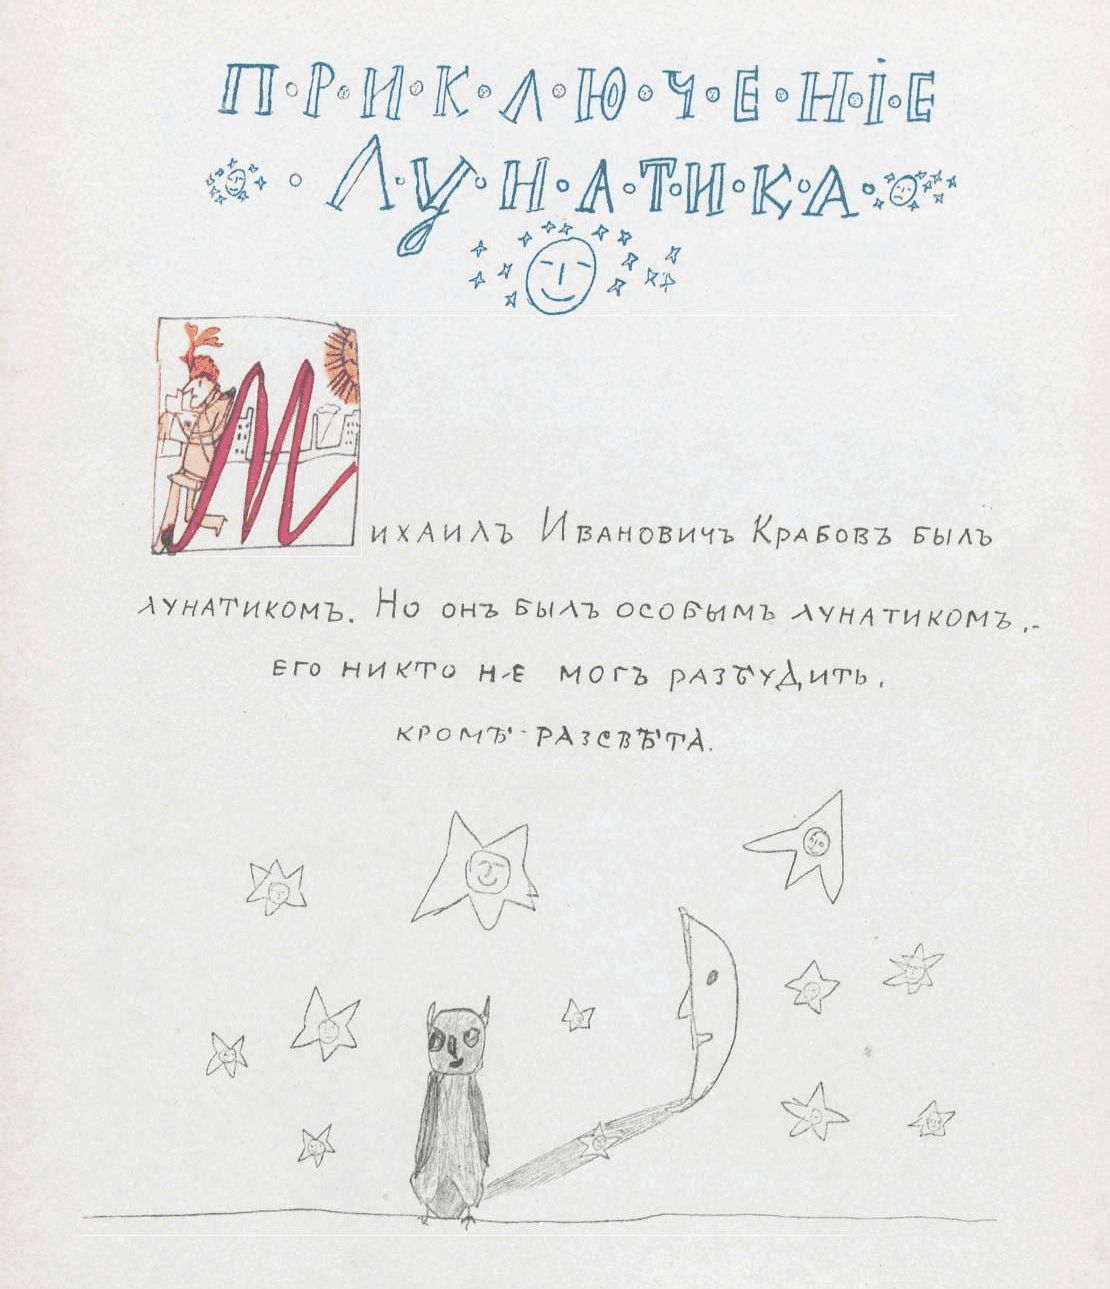 ПРИКЛЮЧЕНІЕ
ЛУНАТИКА
Михаилъ Ивановичъ Крабовъ былъ
лунатикомъ. Но онъ былъ особымъ лунатикомъ,-
его никто не могъ разбудить,
кромѣ разсвѣта.